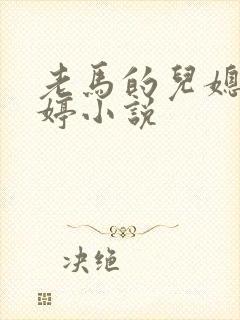 老馬的兒媳
婷小說
决绝